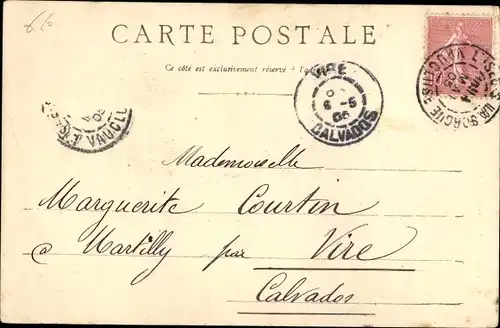 6/-
CARTE POSTALE
Ce côté est exclusivement réservé à
VIRE
6-5
CALVADOS
VAUCLUSE
VAUCL
Mademoiselle
Marguerite Courtin
à Martilly par Vire
Calvados